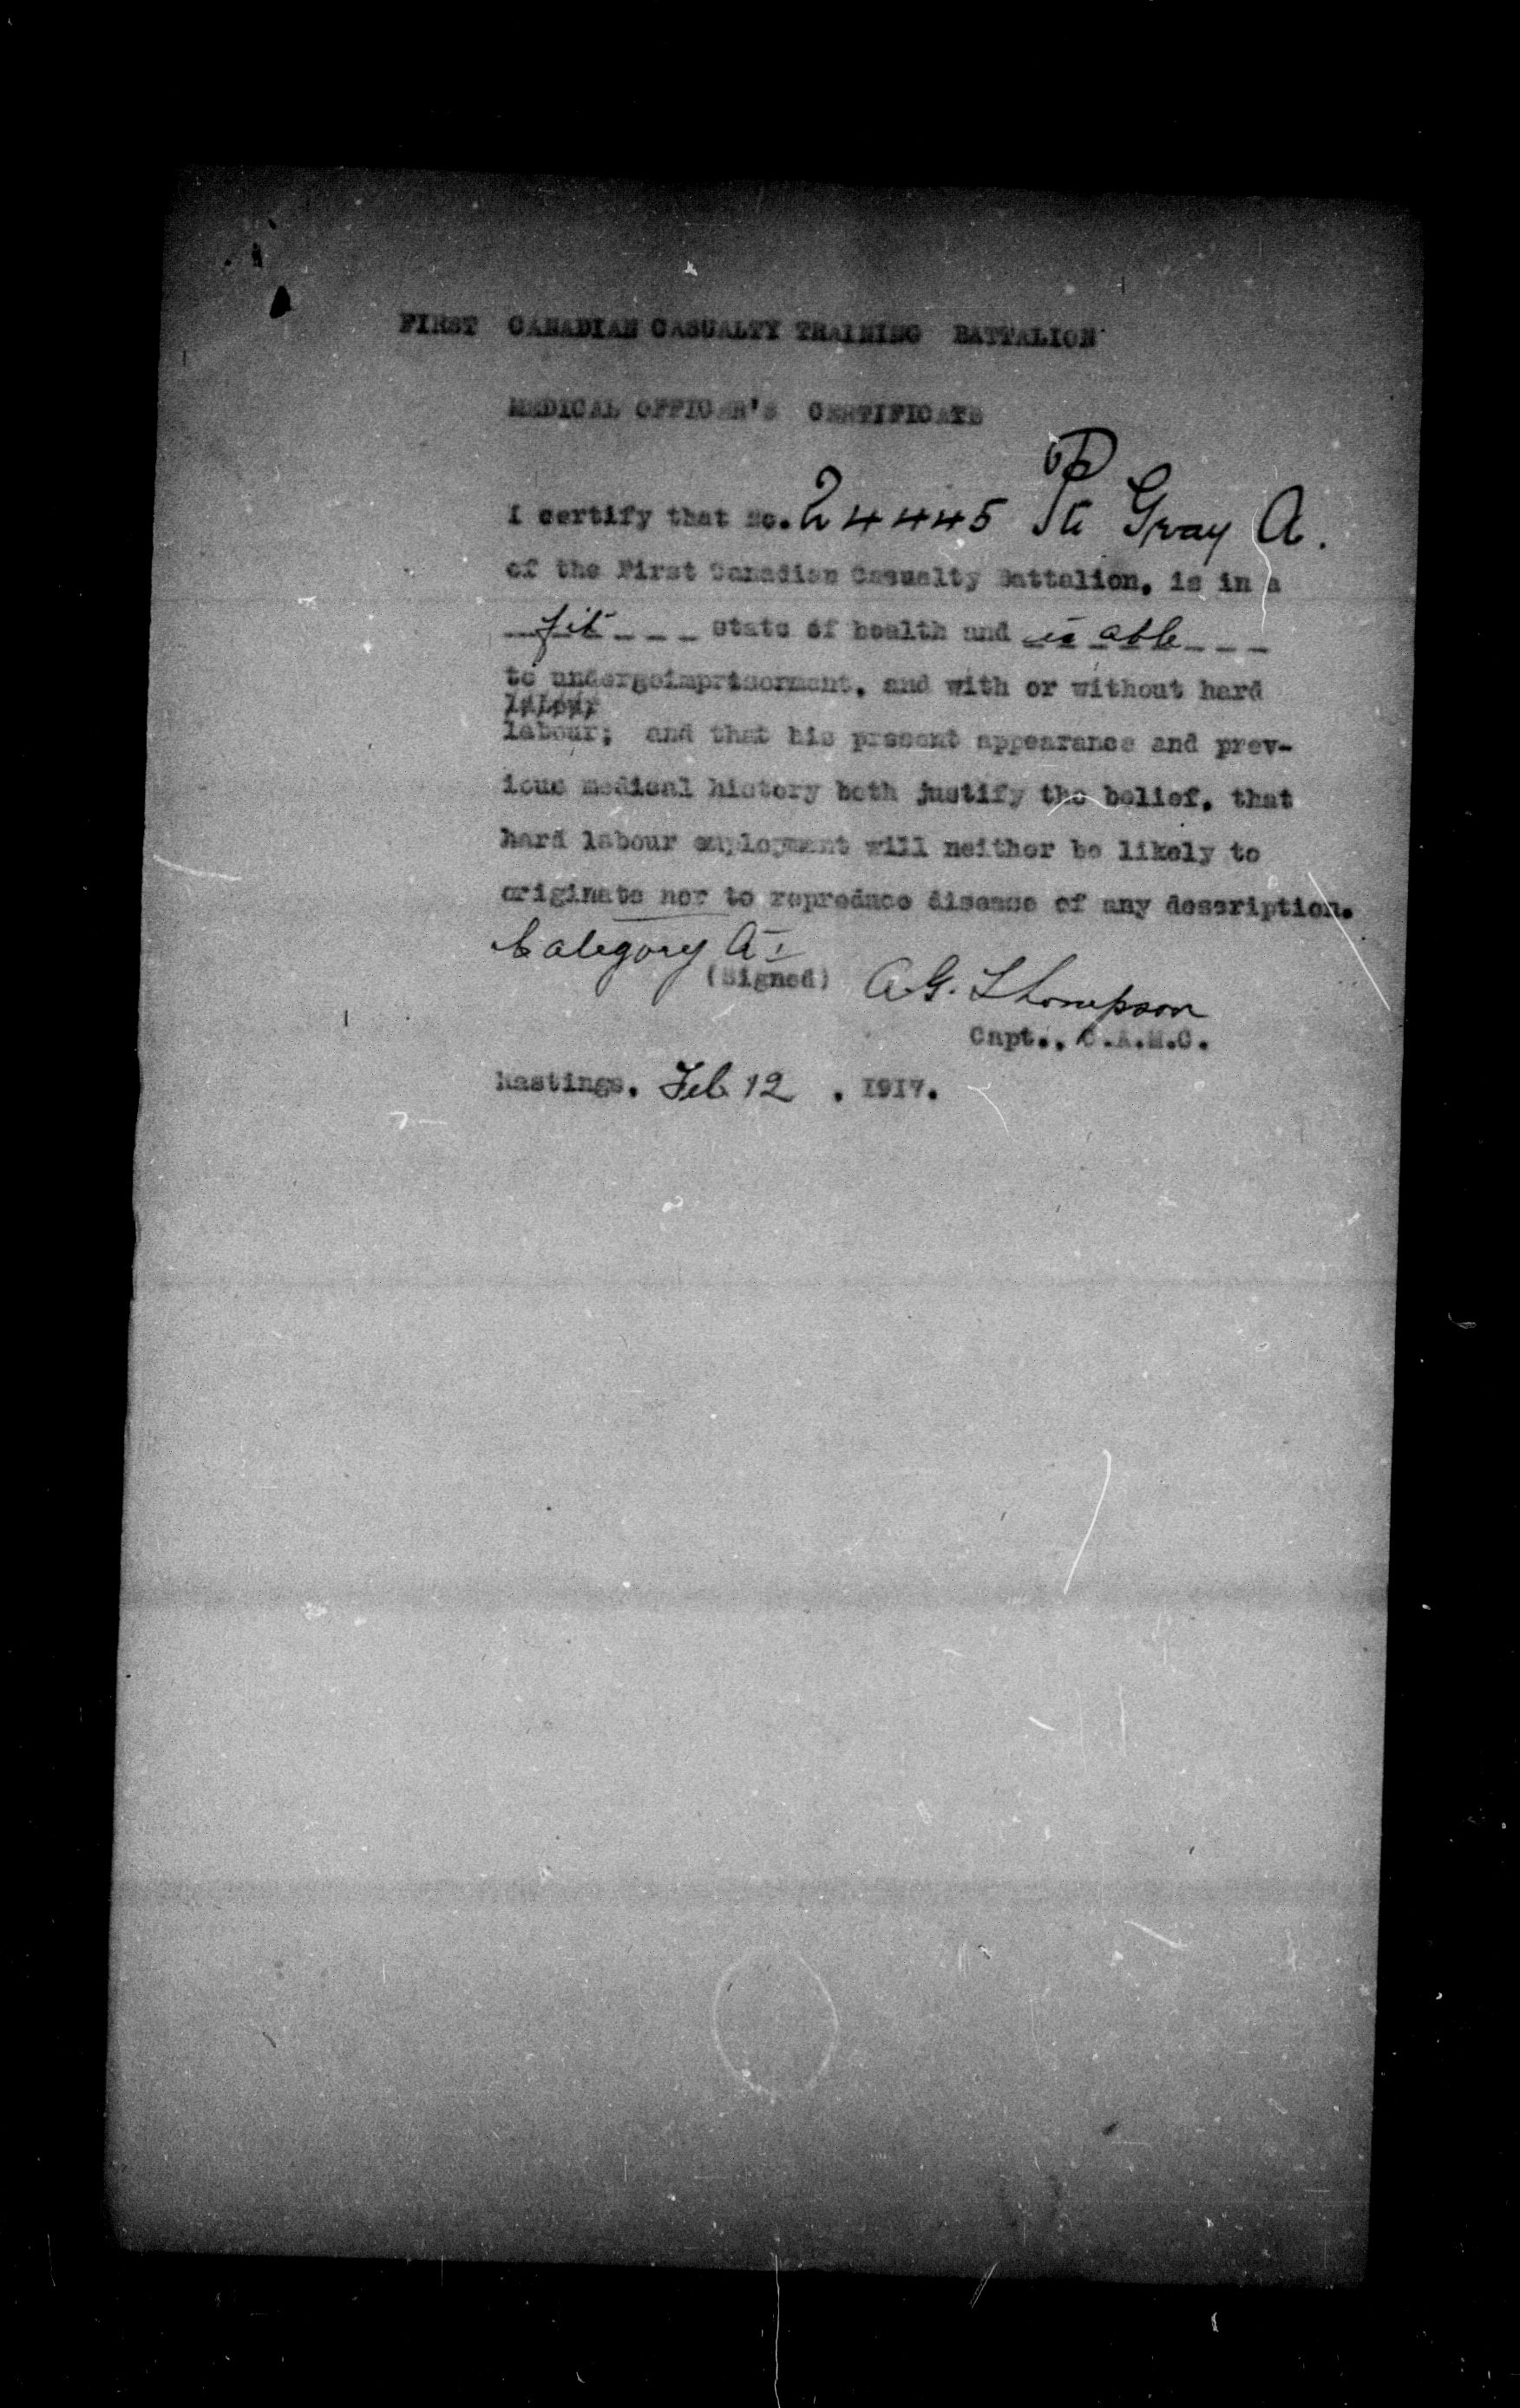 FIRST CANADIAN CASUALTY TRAINING BATTALION
MEDICAL OFFICER'S CERTIFICATE
I certify that No. 24445 Pte Gray A.
of the First Canadian Casualty Battalion, is in a
fit state of health and is able
to undergoimprisonment, and with or without hard
labour
labour; and that his present appearance and prev-
ious medical history both justify the belief, that
hard labour employment will neither be likely to
originate nor to reproduce disease of any description.
Category A I
(Signed) A.G. Thompson
Capt., C.A.M.C.
Hastings. Feb 12 . 1917.